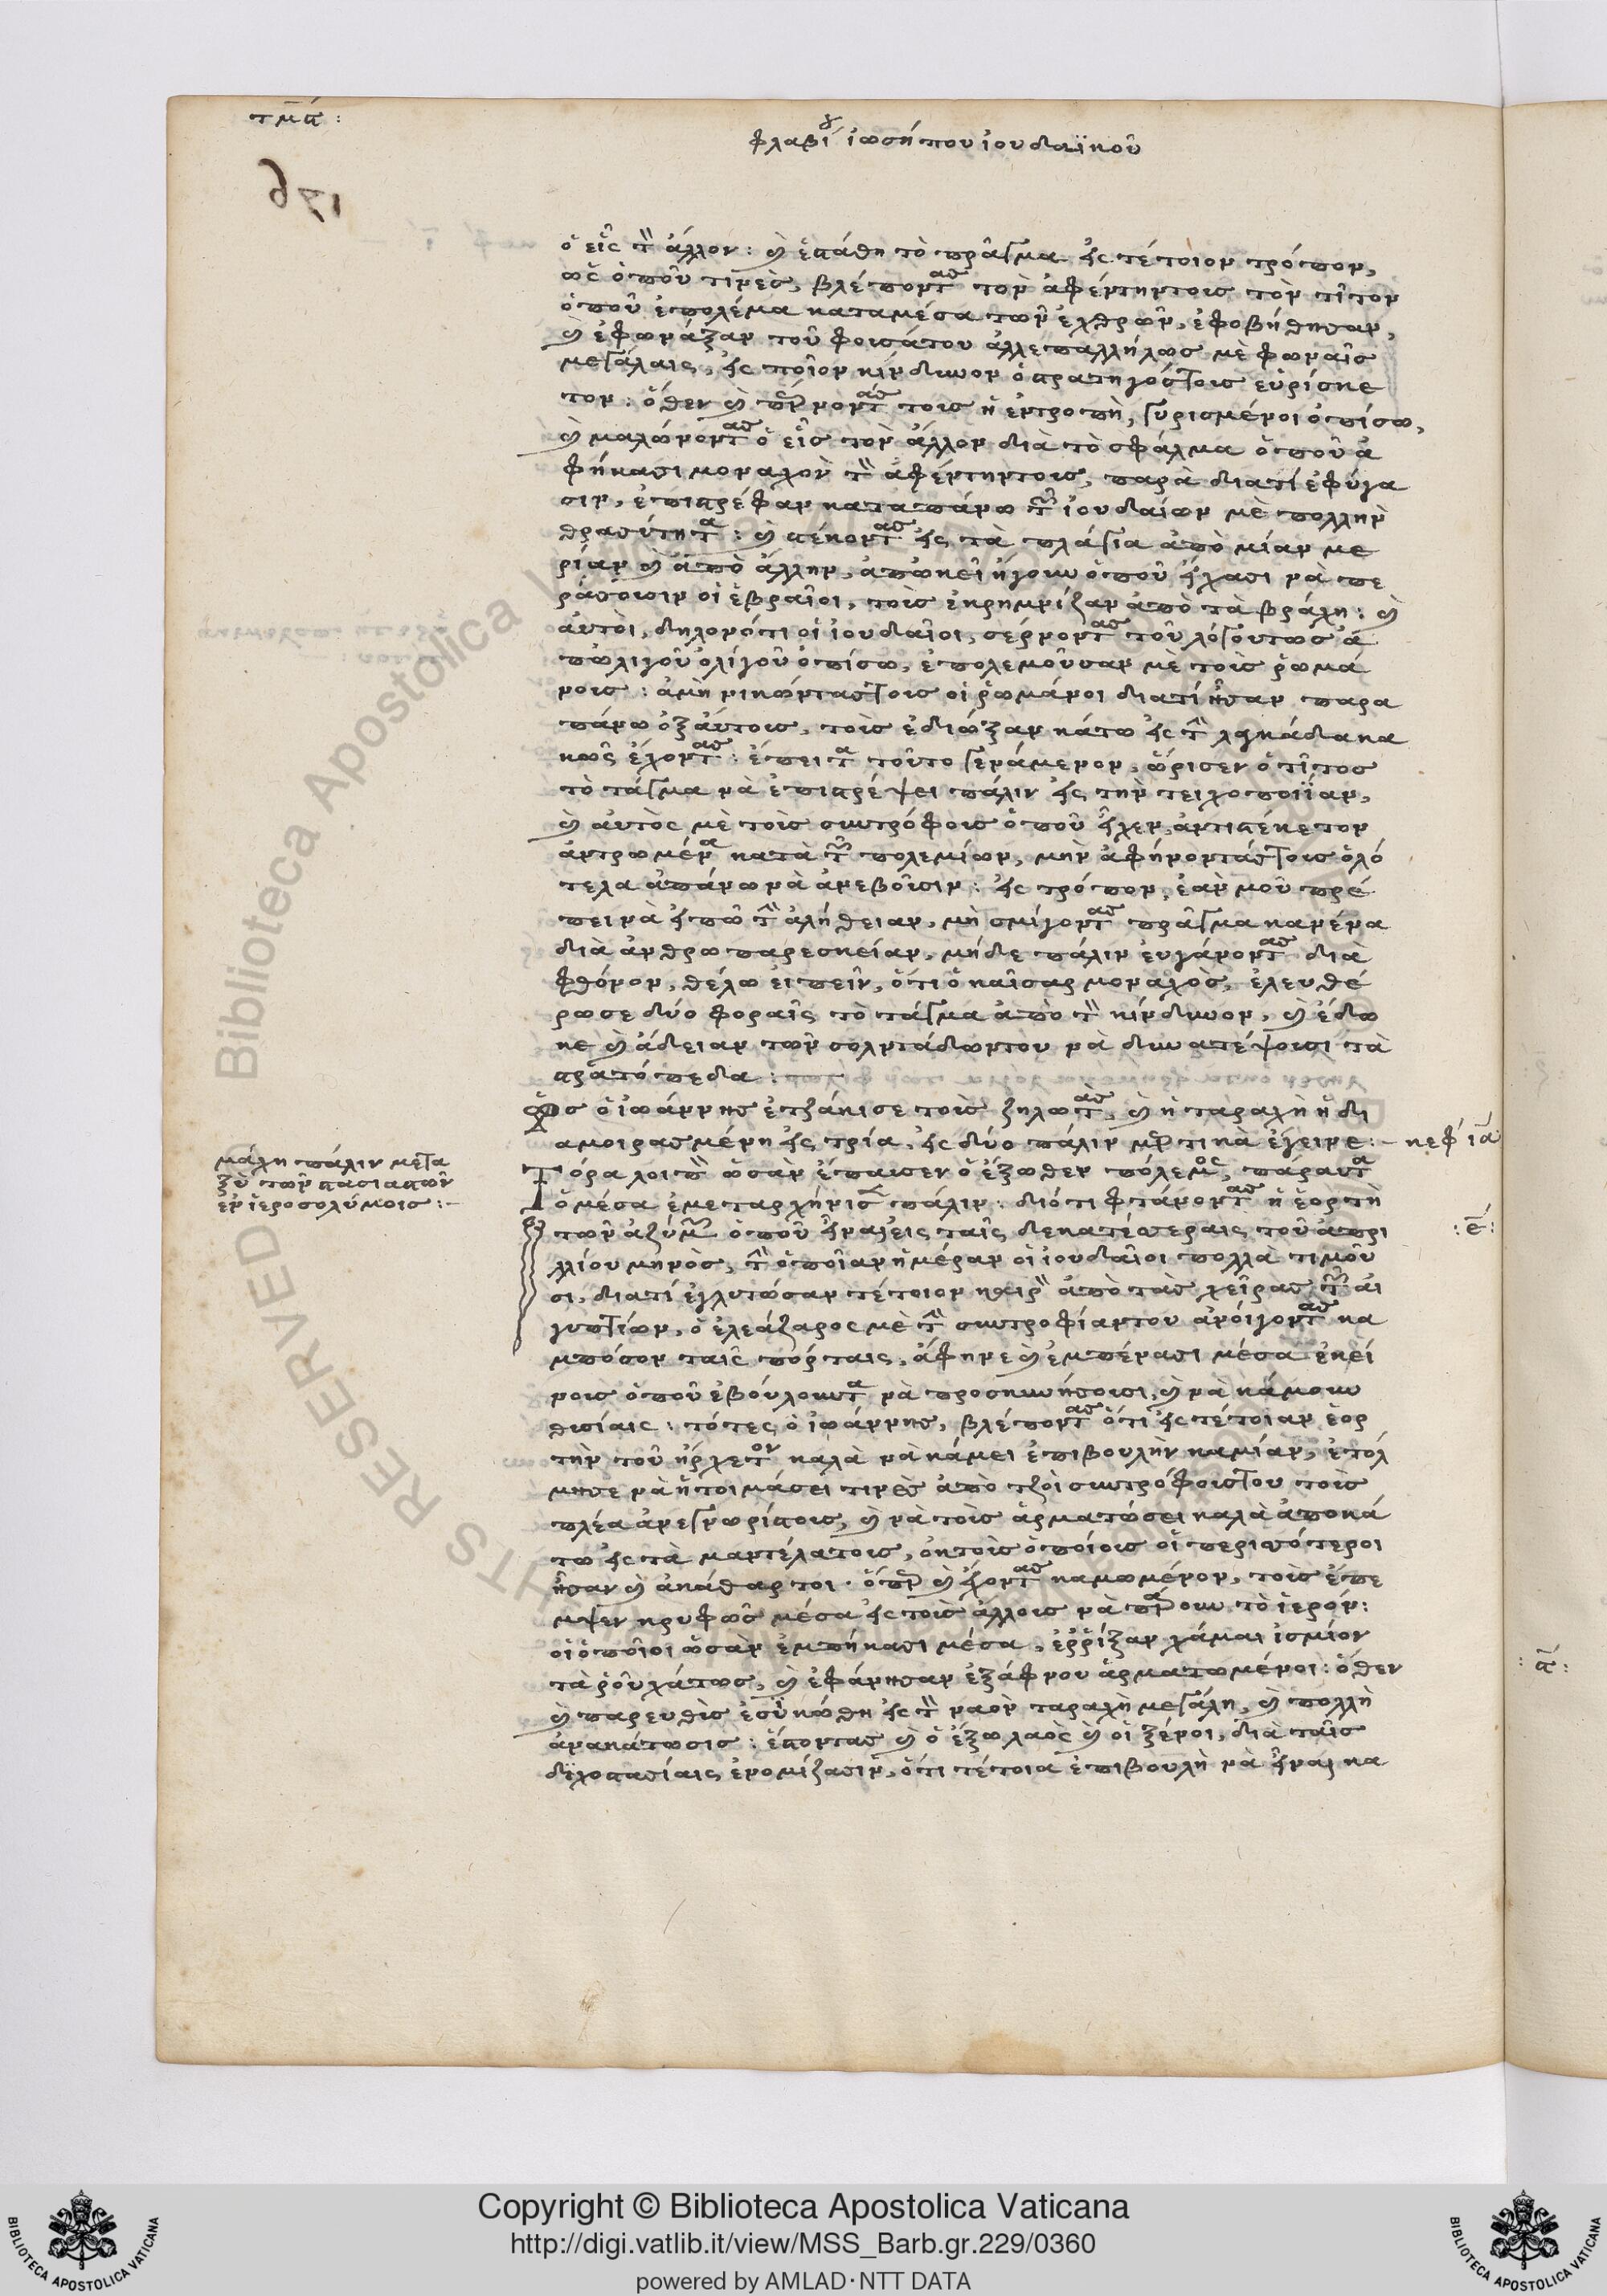 τμα:
φλαβίου ἰωσήπου ἰουδαϊκοῦ
ὁ εἷς τὸν ἄλλον: καὶ ἐστάθη τὸ πρᾶγμα εἰς τέτοιον τρόπον,
ὡς ὁποῦ τινὲς, βλέποντας τὸν ἀφέντηντοις τὸν τῖτον
ὁποῦ ἐπολέμα καταμέσα τῶν ἐχθρῶν, ἐφοβήθησαν,
καὶ ἐφωνάξαν τοῦ φοισάτου ἀλλεπαλλήλως μὲ φωναῖς
μεγάλαις, εἰς ποῖον κίνδυνον ὁ στρατηγόςτοις εὑρίσκε
τον: ὅθεν καὶ πέρνοντας τοις ἡ ἐντροπὴ, γυρισμένοι ὀπίσω,
καὶ μαλώνοντας ὁ εἷς τὸν ἄλλον διὰ τὸ σφάλμα ὁποῦ ἀ
φήκασι μοναχὸν τὸν ἀφέντηντοις, παρὰ διατί ἐφύγα
σιν, ἐπιστρέφαν καταπάνω τῶν ἰουδαίων μὲ πολλὴν
θρασύτητα: καὶ στέκοντας εἰς τὰ πλάγια ἀπὸ μίαν με
ρίαν καὶ ἀπὸ ἄλλην, ἀπῶκεῖ ἤγουν ὁποῦ εἴχασι νὰ πε
ράσουσιν οἱ ἑβραῖοι, τοὶς ἐκρημνίζαν ἀπὸ τὰ βράχη: καὶ
αὐτοὶ, δηλονότι οἱ ἰουδαῖοι, σέρνοντας τοῦ λόγουτως ἀ
πὠλιγοῦ ὀλίγοῦ ὀπίσω, ἐπολεμοῦσαν μὲ τοὶς ῥωμά
νοις: ἀμὴ νικώντας τοις οἱ ῥωμάνοι διατί ἦσαν παρα
πάνω ὀξαύτοις, τοὶς ἐδιώξαν κάτω εἰς τὴν λαγκάδα κα
κῶς ἔχοντας: ἔπειτα τοῦτο γενάμενον, ὥρισεν ὁ τῖτος
τὸ τάγμα νὰ ἐπιστρέψει πάλιν εἰς τὴν τειχοποιΐαν,
καὶ αὐτὸς μὲ τοὶς συντρόφοις ὁποῦ εἶχεν, ἀντιστέκετον
ἀντρωμένα κατὰ τῶν πολεμίων, μὴν ἀφήνοντάς τοις ὁλό
τελα ἀπάνω νὰ ἀνεβοῦσιν: εἰς τρόπον, ἐὰν μοῦ πρέ
πει νὰ εἰπῶ τὴν ἀλήθειαν, μὴ σμίγοντας πρᾶγμα κανένα
διὰ ἀνθρωπαρεσκείαν, μήδε πάλιν εὐγάνοντας διὰ
φθόνον, θέλω εἰπεῖν, ὅτι ὁ καῖσαρ μοναχὸς, ἐλευθέ
ρωσε δύο φοραῖς τὸ τάγμα ἀπὸ τὸν κίνδυνον, καὶ ἔδω
κε καὶ ἄδειαν τῶν σολντάδωντου νὰ δυναστέψουσι τὰ
στρατόπεδα:
Πῶς ὁ ἰωάννης ἐτζάκισε τοὶς ζηλωτάς, καὶ ἡ ταραχὴ ἡ δι
αμοιρασμένη εἰς τρία, εἰς δύο πάλιν μερτικὰ ἔγεινε:- κεφ ια
μάχη πάλιν μετα
ξὺ τῶν στασιαστῶν
ἐν ἱεροσολύμοις:-
Τόρα λοιπὸν ὡσὰν ἔπαυσεν ὁ ἔξωθεν πόλεμος, πάραυτα
ὁ μέσα ἐμεταρχήνισε πάλιν: διότι φτάνοντας ἡ ἑορτὴ
τῶν ἀζύμων ὁποῦ εἶναι εἰς ταῖς δεκατέσσεραις τοῦ ἀπρι :ε:
λλίου μηνὸς, τὴν ὁποῖαν ἡμέραν οἱ ἰουδαῖοι πολλὰ τιμοῦ
σι, διατί ἐγλυτώσαν τέτοιον καιρὸν ἀπὸ τὰς χεῖρας τῶν αἰ
γυπτίων, ὁ ἐλεάζαρος μὲ τὴν συντροφίαντου ἀνοίγοντας κα
μπόσον ταῖς πόρταις, ἄφηνε καὶ ἐμπέναϲι μέσα ἐκεί
νοις ὁποῦ ἐβούλουντα νὰ προσκυνήσουσι, καὶ νὰ κάμουν
θυσίαις: τότες ὁ ἰωάννης, βλέποντας ὅτι εἰς τέτοιαν ἑορ
τὴν τοῦ ἤρχετον καλὰ νὰ κάμει ἐπιβουλὴν καμίαν, ἐτόλ
μησε νὰ ἡτοιμάσει τινὲς ἀπὸ τζοὶ συντρόφοιςτου τοὶς
πλέα ἀνεγνωρίστοις, καὶ νὰ τοὶς ἁρματώσει καλὰ ἀποκά
τω εἰς τὰ μαντέλατοις, ὀκτοὶς ὁποίοις οἱ περισσότεροι
ἦσαν καὶ ἀκάθαρτοι. ὅπερ καὶ ἔχοντας καμωμένον, τοὶς ἔπε
μψεν κρυφῶς μέσα εἰς τοὶς ἄλλοις νὰ πάρουν τὸ ἱερόν:
οἱ ὁποῖοι ὡσὰν ἐμπήκασι μέσα, ἐῤῥίξαν χάμαι ἰσμίον :α:
τὰ ῥοῦχάτως, καὶ ἐφάνησαν ἐξάφνου ἁρματωμένοι: ὅθεν
καὶ παρευθὶς ἐσυκώθη εἰς τὸν ναὸν ταραχὴ μεγάλη, καὶ πολλὴ
ἀνακάτωσις: ἔστοντας καὶ ὁ ἔξω λαὸς καὶ οἱ ξένοι, διὰ ταῖς
διχοστασίαις ἐνομίζασιν, ὅτι τέτοια ἐπιβουλὴ νὰ εἶναι κα
Copyright © Biblioteca Apostolica Vaticana
http://digi.vatlib.it/view/MSS_Barb.gr.229/0360
powered by AMLAD·NTT DATA